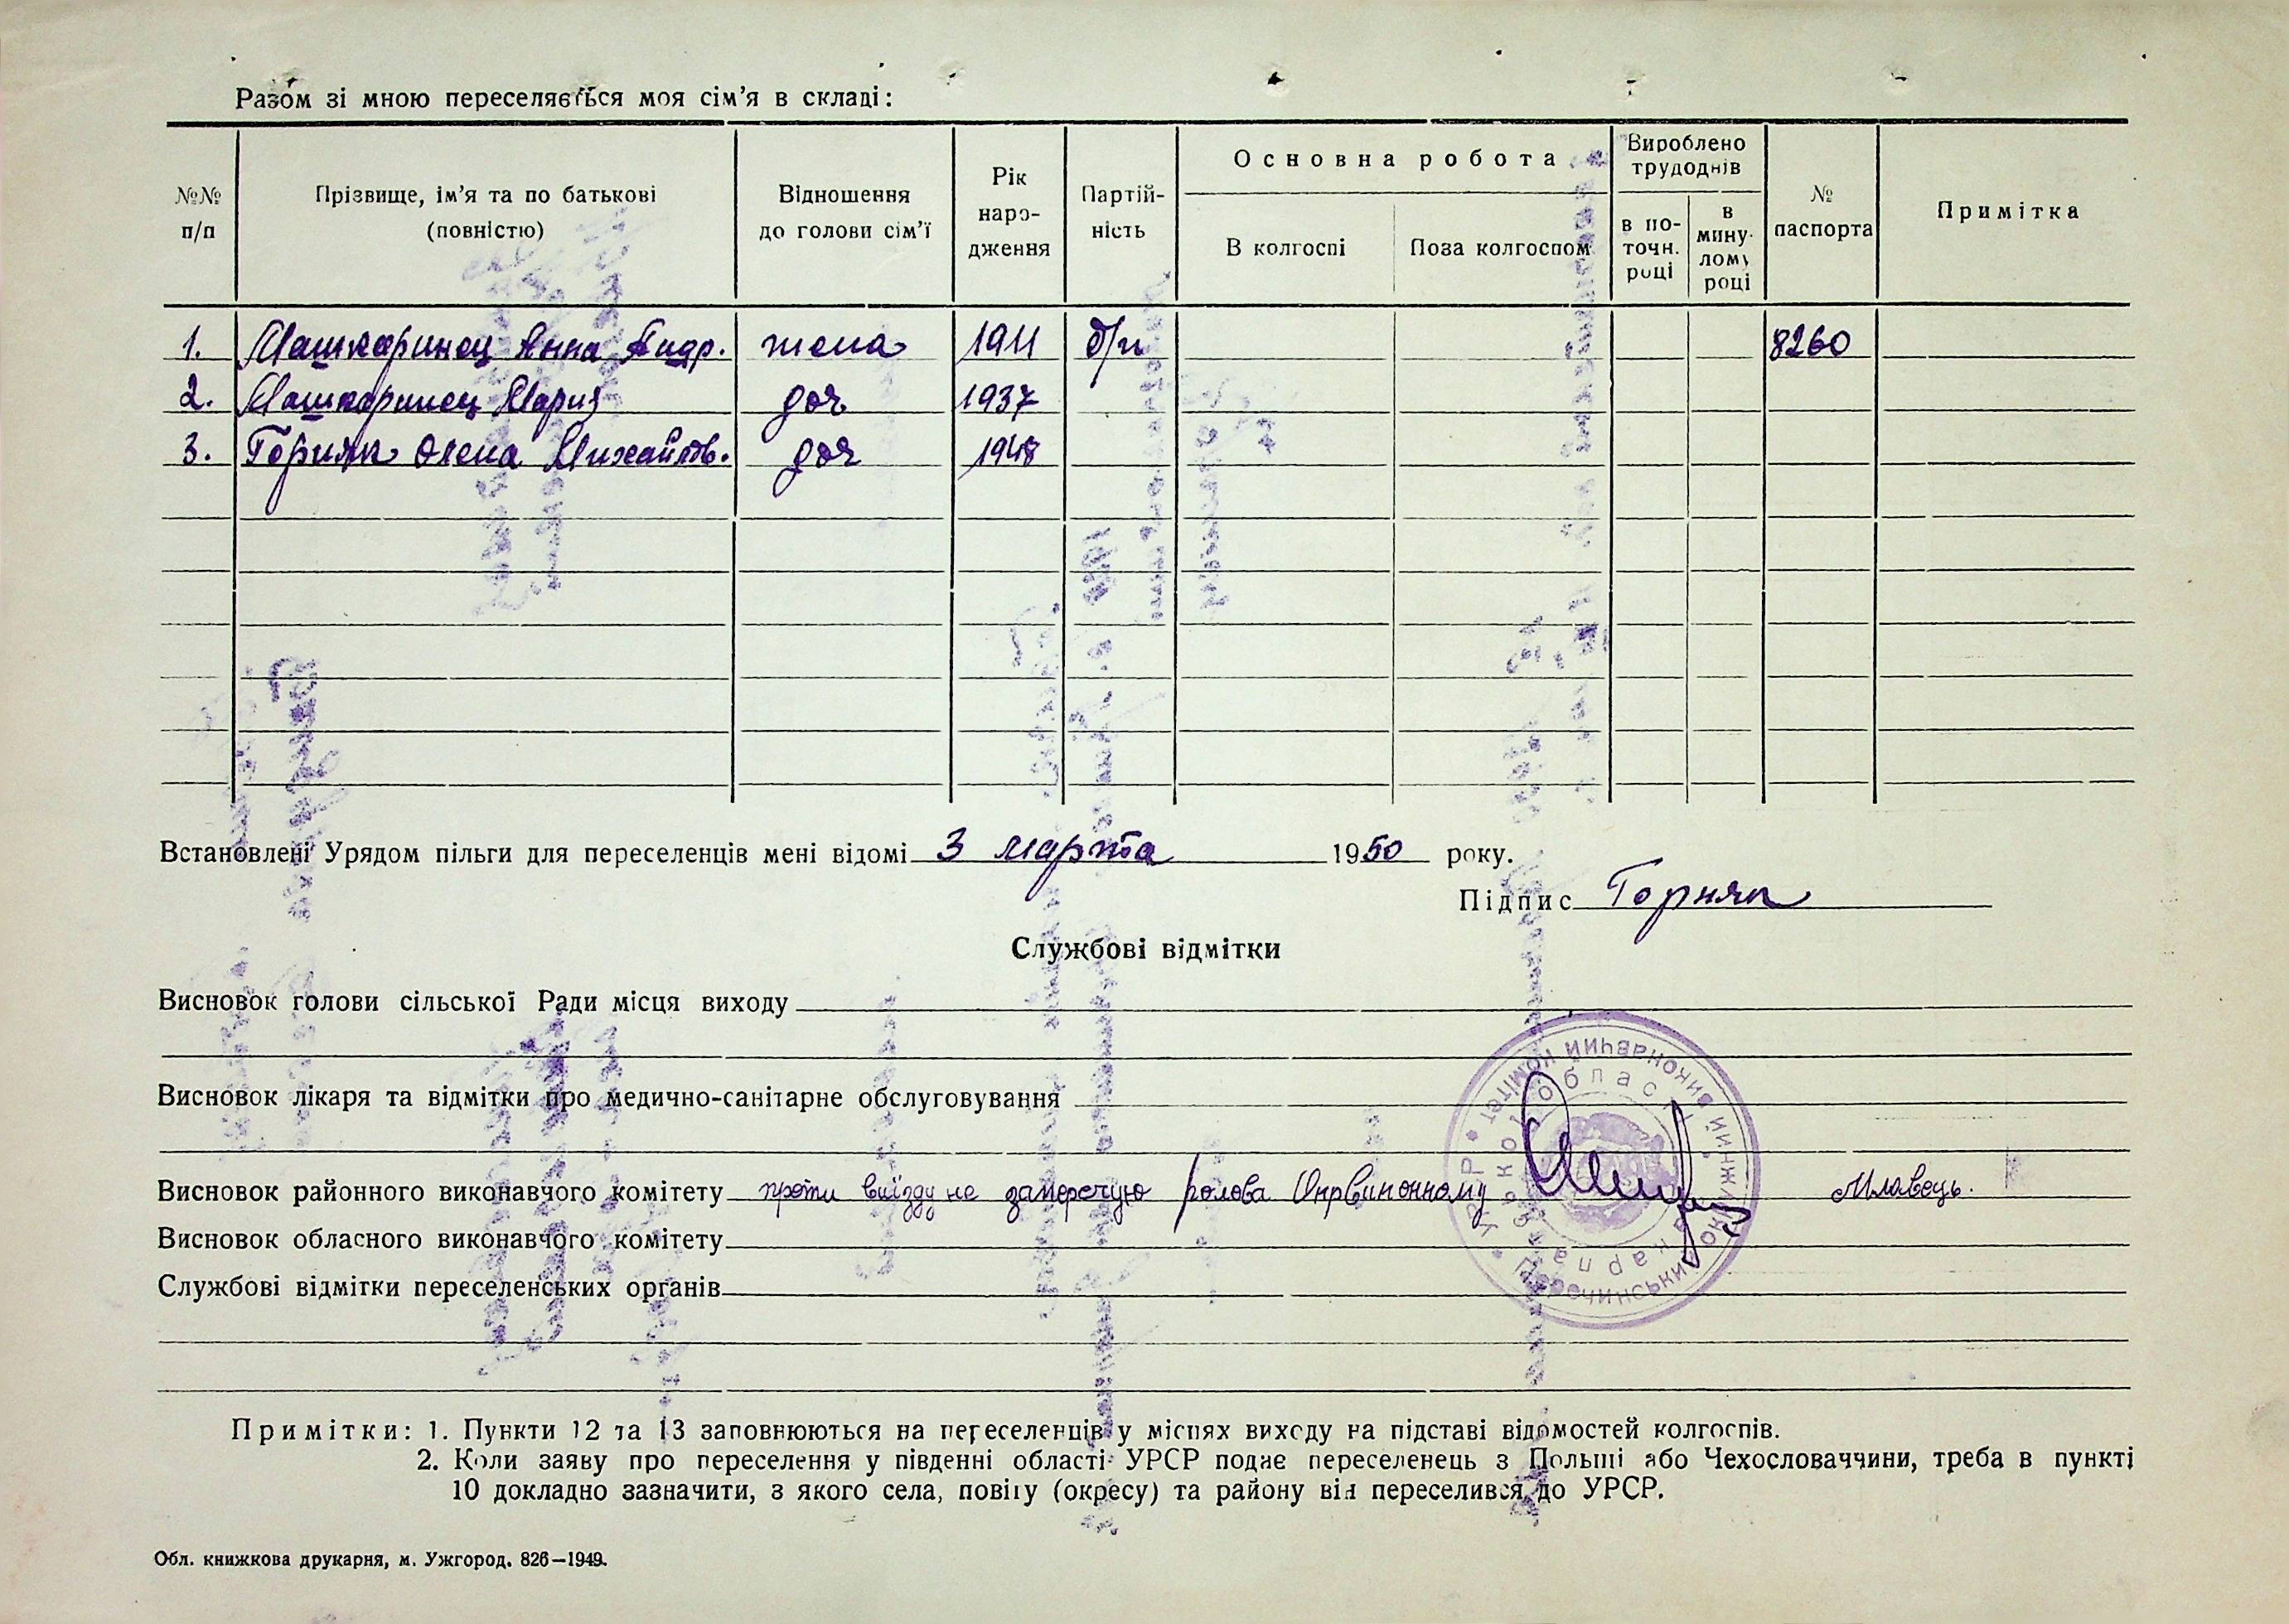 Разом зі мною переселяється моя сім'я в складі:
№№ п/п
Прізвище, ім'я та по батькові (повністю)
Відношення до голови сім'ї
Рік наро-дження
Партій-ність
Основна робота
В колгоспі
Поза колгоспом
Вироблено трудоднів
в по-точн. році
в мину-лому році
№ паспорта
Примітка
1. Машкаринец Анна Андр. жена 1911 б/п 8260
2. Машкаринец Мария доч 1937
3. Горняк Олена Михайлов. доч 1948
Встановлені Урядом пільги для переселенців мені відомі 3 марта 1950 року.
Підпис Горняк
Службові відмітки
Висновок голови сільської Ради місця виходу
Висновок лікаря та відмітки про медично-санітарне обслуговування
Висновок районного виконавчого комітету проти виїзду не заперечую голова Окрвиконкому Милавець.
Висновок обласного виконавчого комітету
Службові відмітки переселенських органів
Примітки: 1. Пункти 12 та 13 заповнюються на переселенців у місцях виходу на підставі відомостей колгоспів.
2. Коли заяву про переселення у південні області УРСР подає переселенець з Польщі або Чехословаччини, треба в пункті
10 докладно зазначити, з якого села, повіту (окресу) та району він переселився до УРСР.
Обл. книжкова друкарня, м. Ужгород. 826—1949.